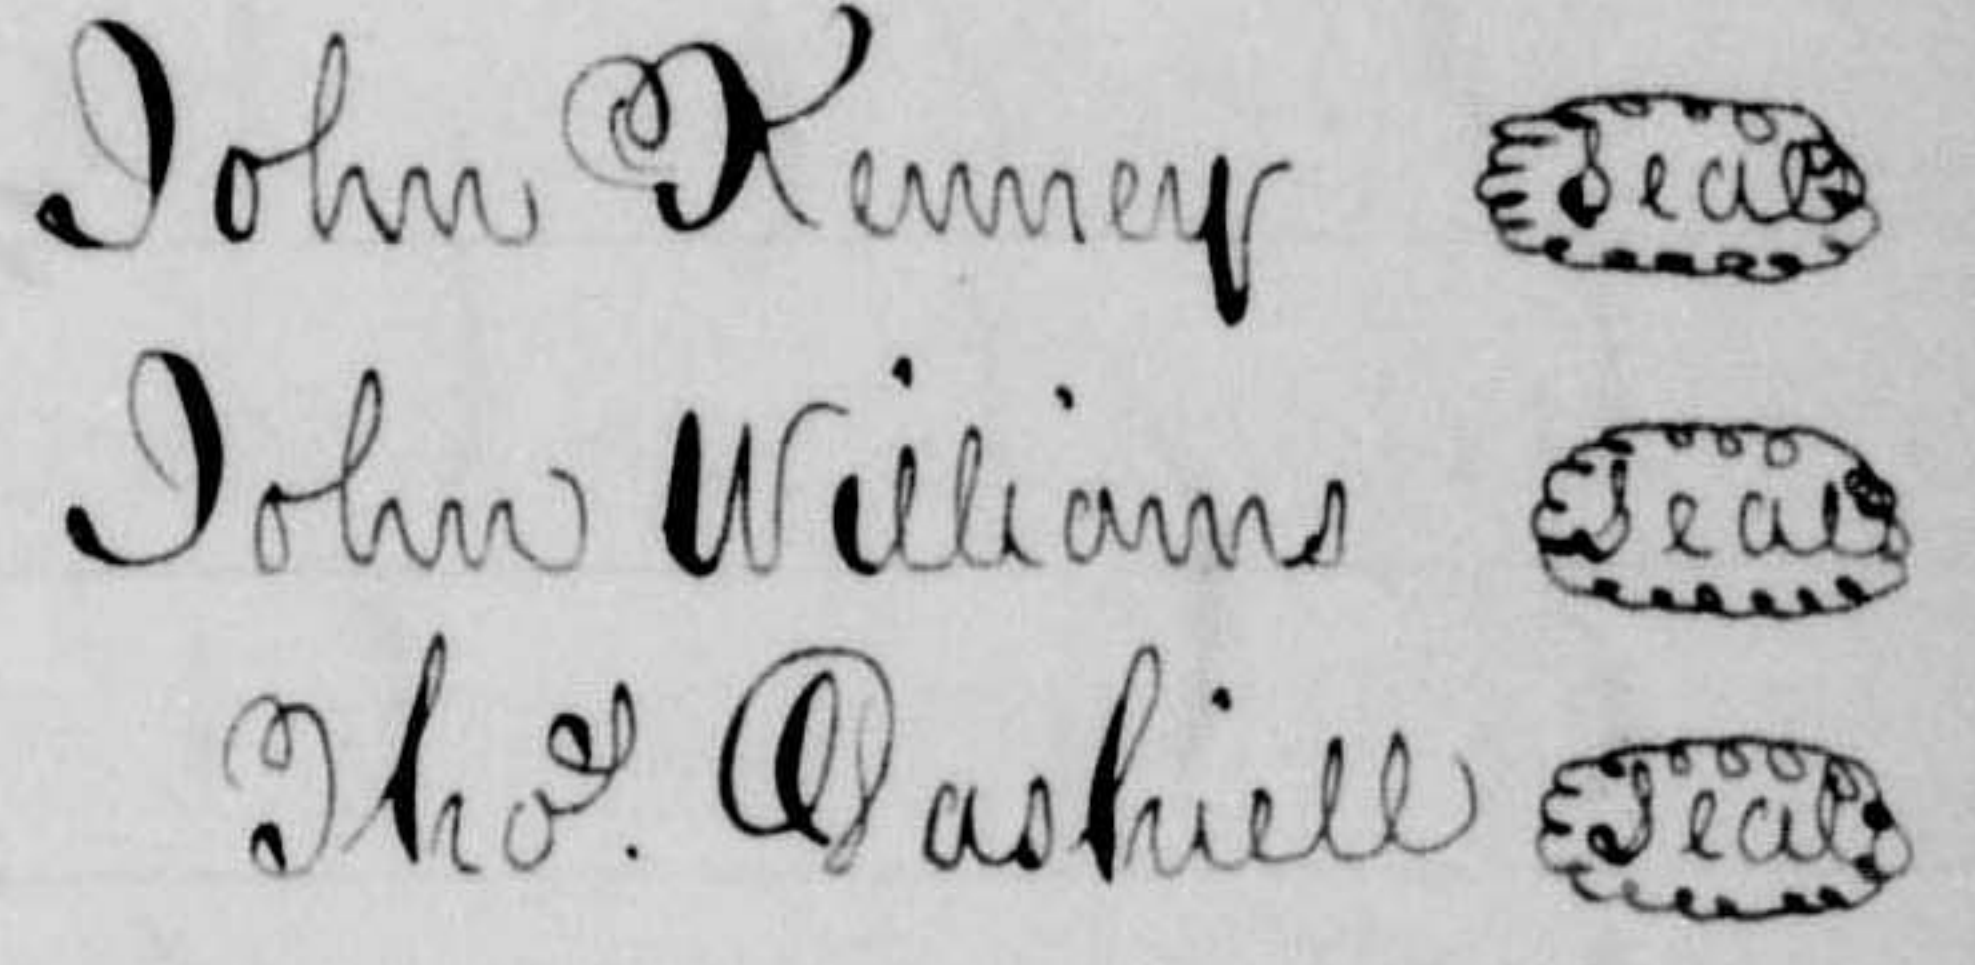 John Kenney Seal
John Williams Seal
Thos. Dashiell Seal